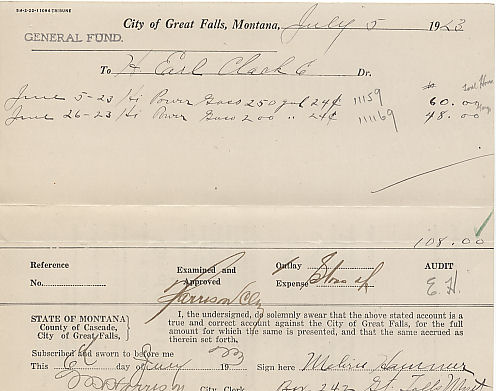 5M-2-22-11094 TRIBUNE
City of Great Falls, Montana, July 5 1923
GENERAL FUND.
To H Earl Clack Co Dr.
June 5-23 Hi Power Gaso 250 gal 24¢ 11159 60.00
June 26-23 Hi Power Gaso 200 " 24¢ 111169 48.00
108.00
Reference
No.
Examined and
Approved
Harrison
Outlay
Expense
AUDIT
E.H.
STATE OF MONTANA
County of Cascade,
City of Great Falls,
I, the undersigned, do solemnly swear that the above stated account is a
true and correct account against the City of Great Falls, for the full
amount for which the same is presented, and that the same accrued as
therein set forth,
Subscribed and sworn to before me
This day of July 19 23
Sign here
Harrison City Clerk
Box 242 Gt. Falls Mont